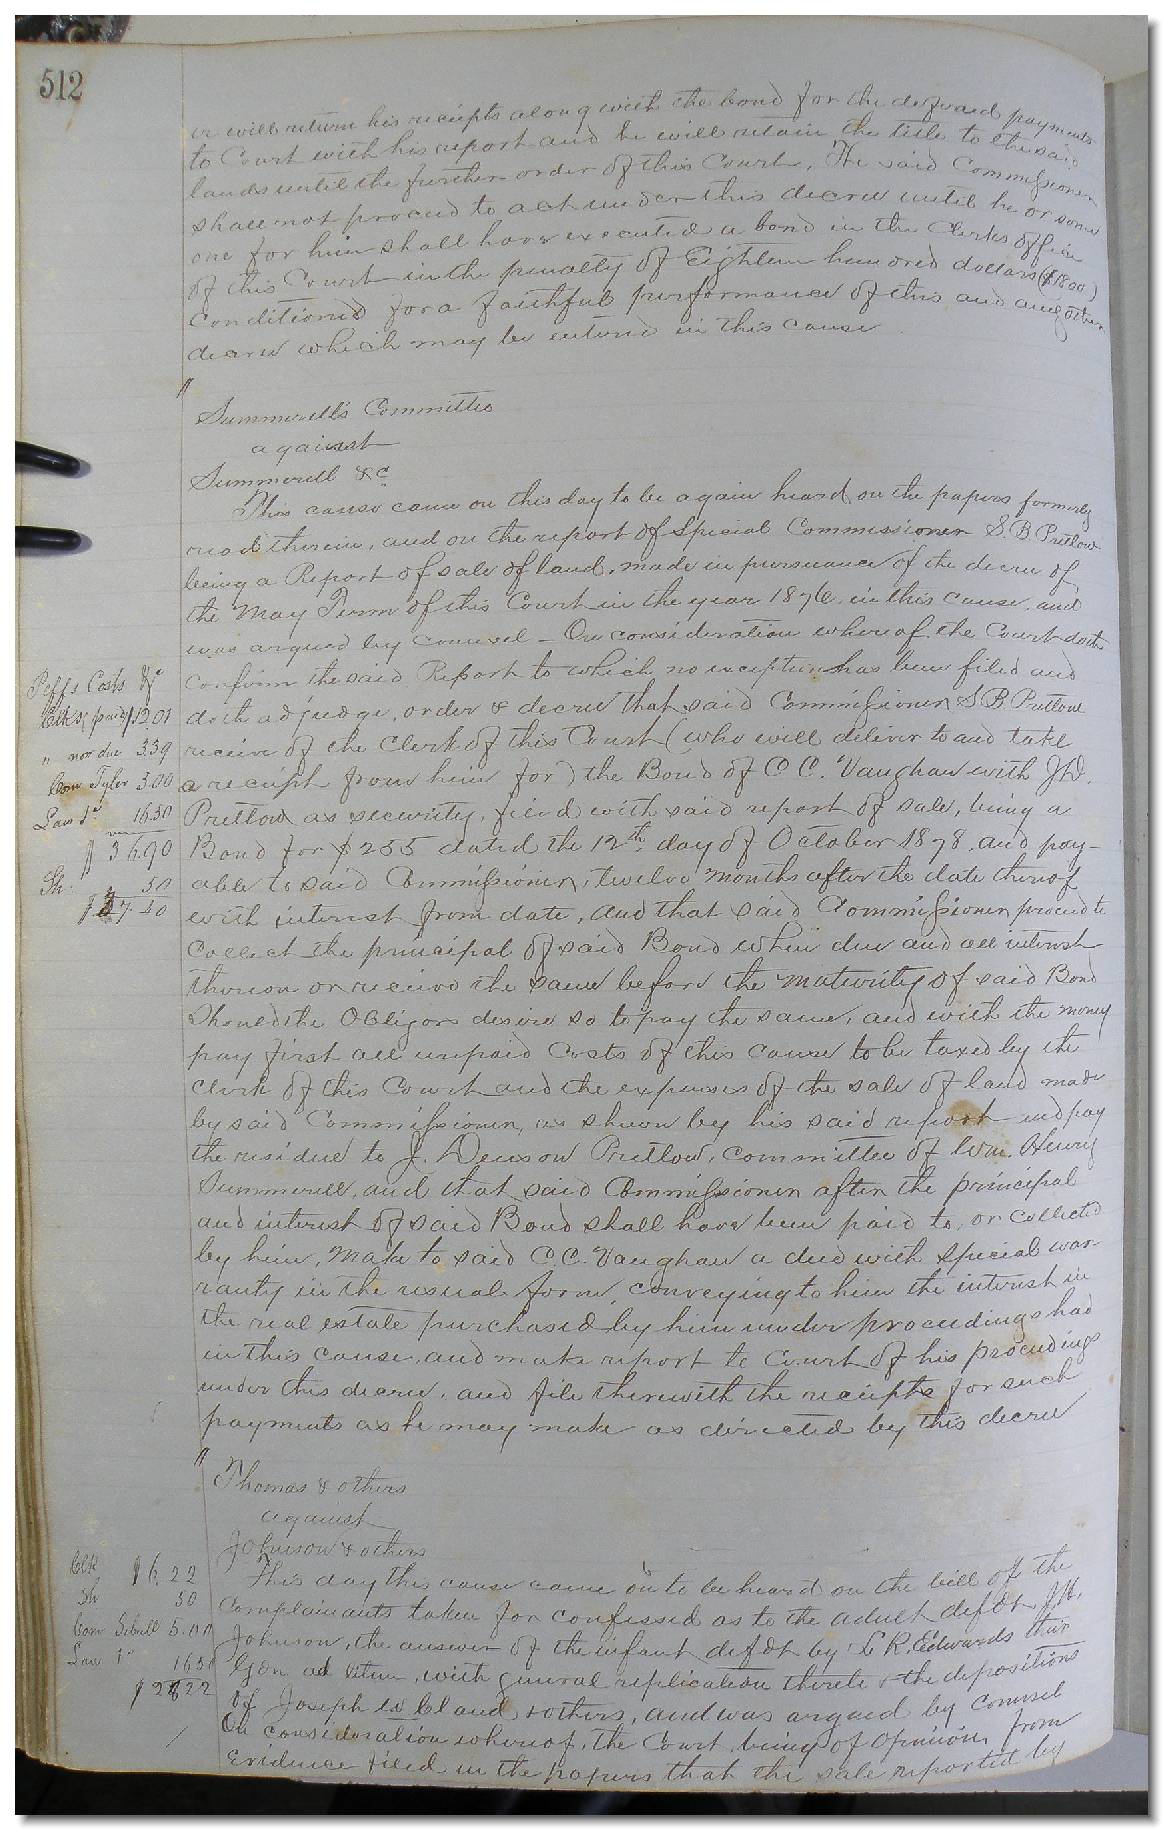 512
he will return his receipts along with the bond for the deferred payments
to Court with his report and he will retain the title to the said
lands until the further order of this Court, The said Commissioner
shall not proceed to act under this decree until he or some
one for him shall have executed a bond in the Clerks office
of this Court in the penalty of Eighteen hundred dollars ($1800)
conditioned for a faithful performance of this and any other
decree which may be entered in this cause
"
Summerell's Committee
against
Summerell &c
This cause came on this day to be again heard on the papers formerly
read therein, and on the report of Special Commissioner S. B. Pretlow
being a Report of sale of land, made in pursuance of the decree of
the May Term of this Court in the year 1876 in this cause, and
was argued by counsel – On consideration whereof the Court doth
confirm the said Report to which no exception has been filed and
doth adjudge, order & decree that said Commissioner S. B. Pretlow
receive of the Clerk of this Court (who will deliver to and take
a receipt from him for) the Bond of C C. Vaughan with J. D.
Pretlow as security, filed with said report of sale, being a
Bond for $255 dated the 12th day of October 1878, and pay-
able to said Commissioner, twelve months after the date thereof
with interest from date, and that said Commissioner proceed to
collect the principal of said Bond when due and all interest
thereon or receive the same before the maturity of said Bond
Should the Obligors desire so to pay the same, and with the money
pay first all unpaid Costs of this cause to be taxed by the
clerk of this Court and the expenses of the sale of land made
by said Commissioner, as shewn by his said report and pay
the residue to J. Denson Pretlow, Committee of Wm. Henry
Summerell, and that said Commissioner after the principal
and interest of said Bond shall have been paid to, or collected
by him, make to said C. C. Vaughan a deed with special war-
ranty in the usual form, conveying to him the interest in
the real estate purchased by him under proceedings had
in this cause, and make report to Court of his proceedings
under this decree, and file therewith the receipts for such
payments as he may make as directed by this decree
Plffs Costs &c
Clks (paid) $12.01
" now due 3.39
Com Tyler 3.00
Law fe 16.50
$ 36.90
Sh: 50
$37.40
"
Thomas & others
against
Johnson & others
This day this cause came on to be heard on the bill of the
Complainants taken for confessed as to the adult defdt J. H.
Johnson, the answer of the infant defdt by L. R. Edwards their
Gdn ad litem, with general replication thereto & the depositions
of Joseph Eland & others, and was argued by Counsel
On consideration whereof, the Court being of opinion from
Evidence filed in the papers that the sale reported by
Clk $6.22
Sh 50
Com Sebrell 5.00
Law fe 16.50
$28.22